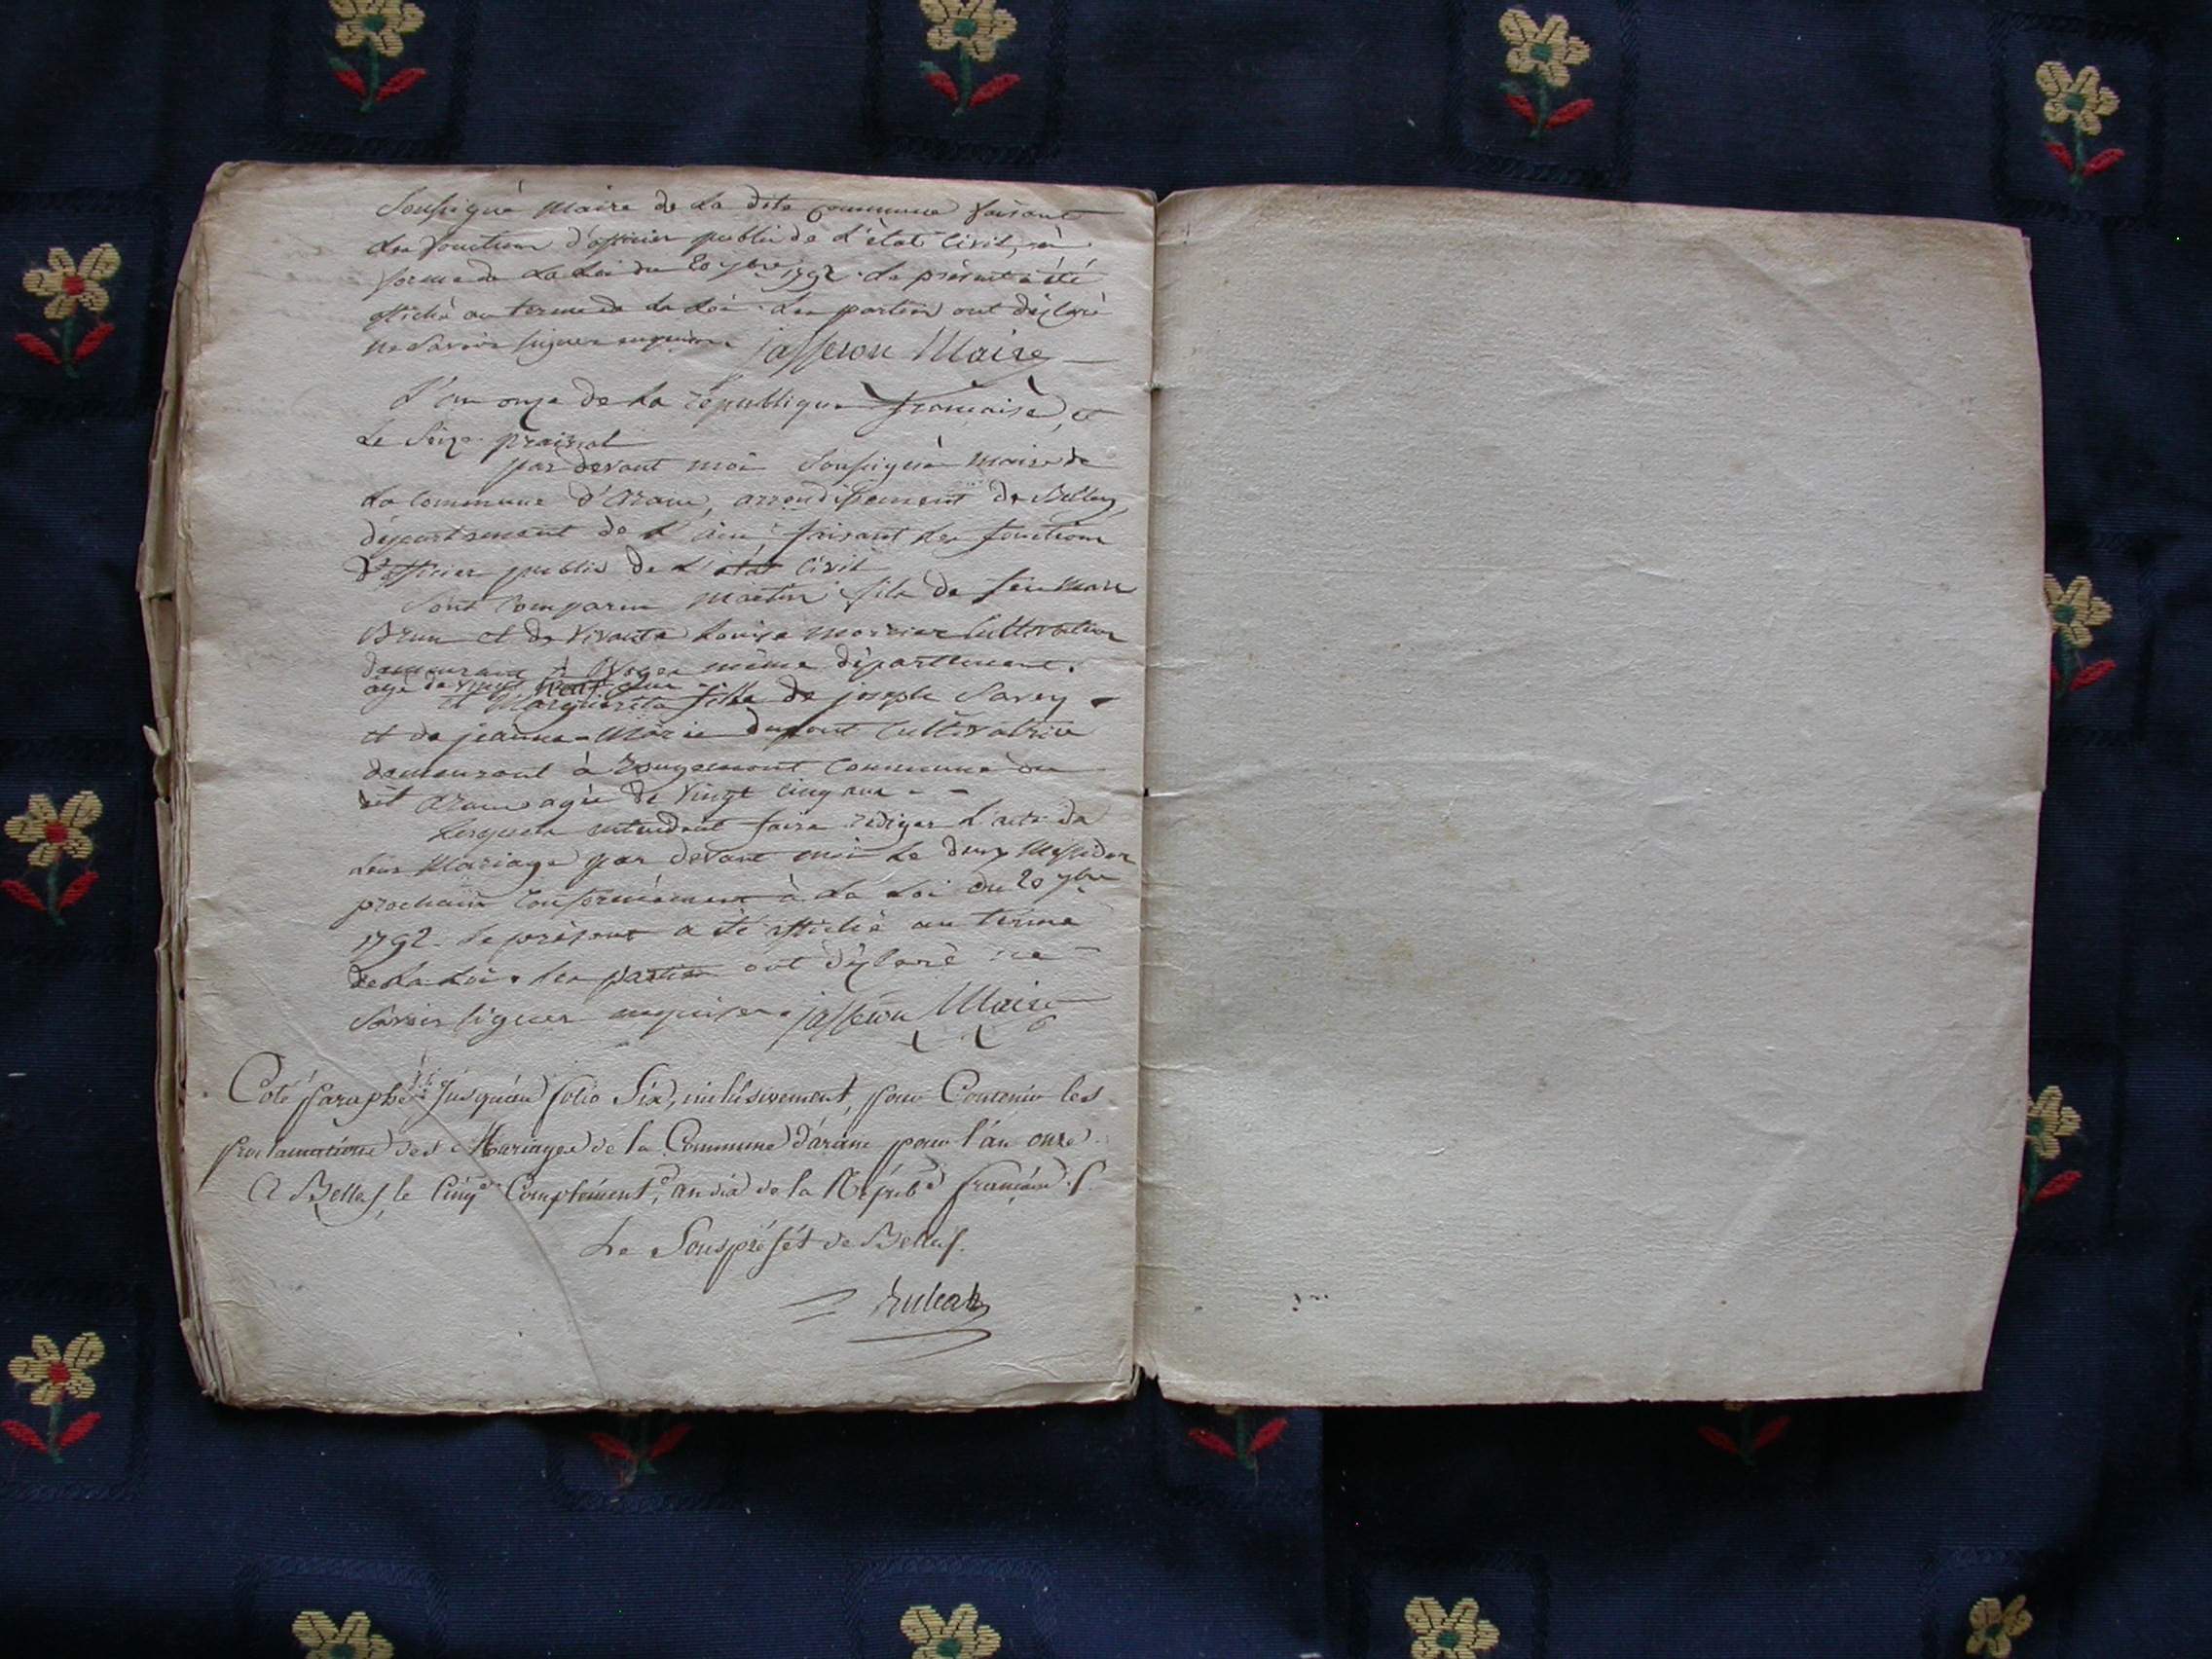 Soussigné maire de la dite commune faisant
les fonctions d'officier public de l'état civil, en
forme de la loi du 20 7bre 1792. le présent a été
affiché au terme de la loi. les parties ont déclaré
ne savoir signer enquises jasseron Maire
L'an onze de la république française, et
le seize prairial
par devant moi soussigné maire de
la commune d'aranc, arrondissement de Belley,
département de l'ain, faisant les fonctions
d'officier public de l'état civil
Sont comparus martin fils de feu
Brun et de vivante Louise cultivateur
demeurant à même département.
agé de vingt neuf ans
et Marguerite fille de joseph Savey
et de jeanne-Marie dupont cultivatrice
demeurant à rougemont commune du
dit aranc agée de vingt cinq ans - -
Lesquels entendent faire rédiger l'acte de
leur mariage par devant moi le deux Messidor
prochain conformément à la loi du 20 7bre
1792. le présent a été affiché au terme
de la loi. les parties ont déclaré ne
savoir signer enquises. jasseron Maire
Coté & paraphé jusqu'au folio Six, inclusivement, pour Contenir les
proclamations des Mariages de la Commune d'aranc pour l'an onze.
A Belley, le Cinq.e Complément.e, an dix de la Répub.e française.
Le Souspréfét de Belley.